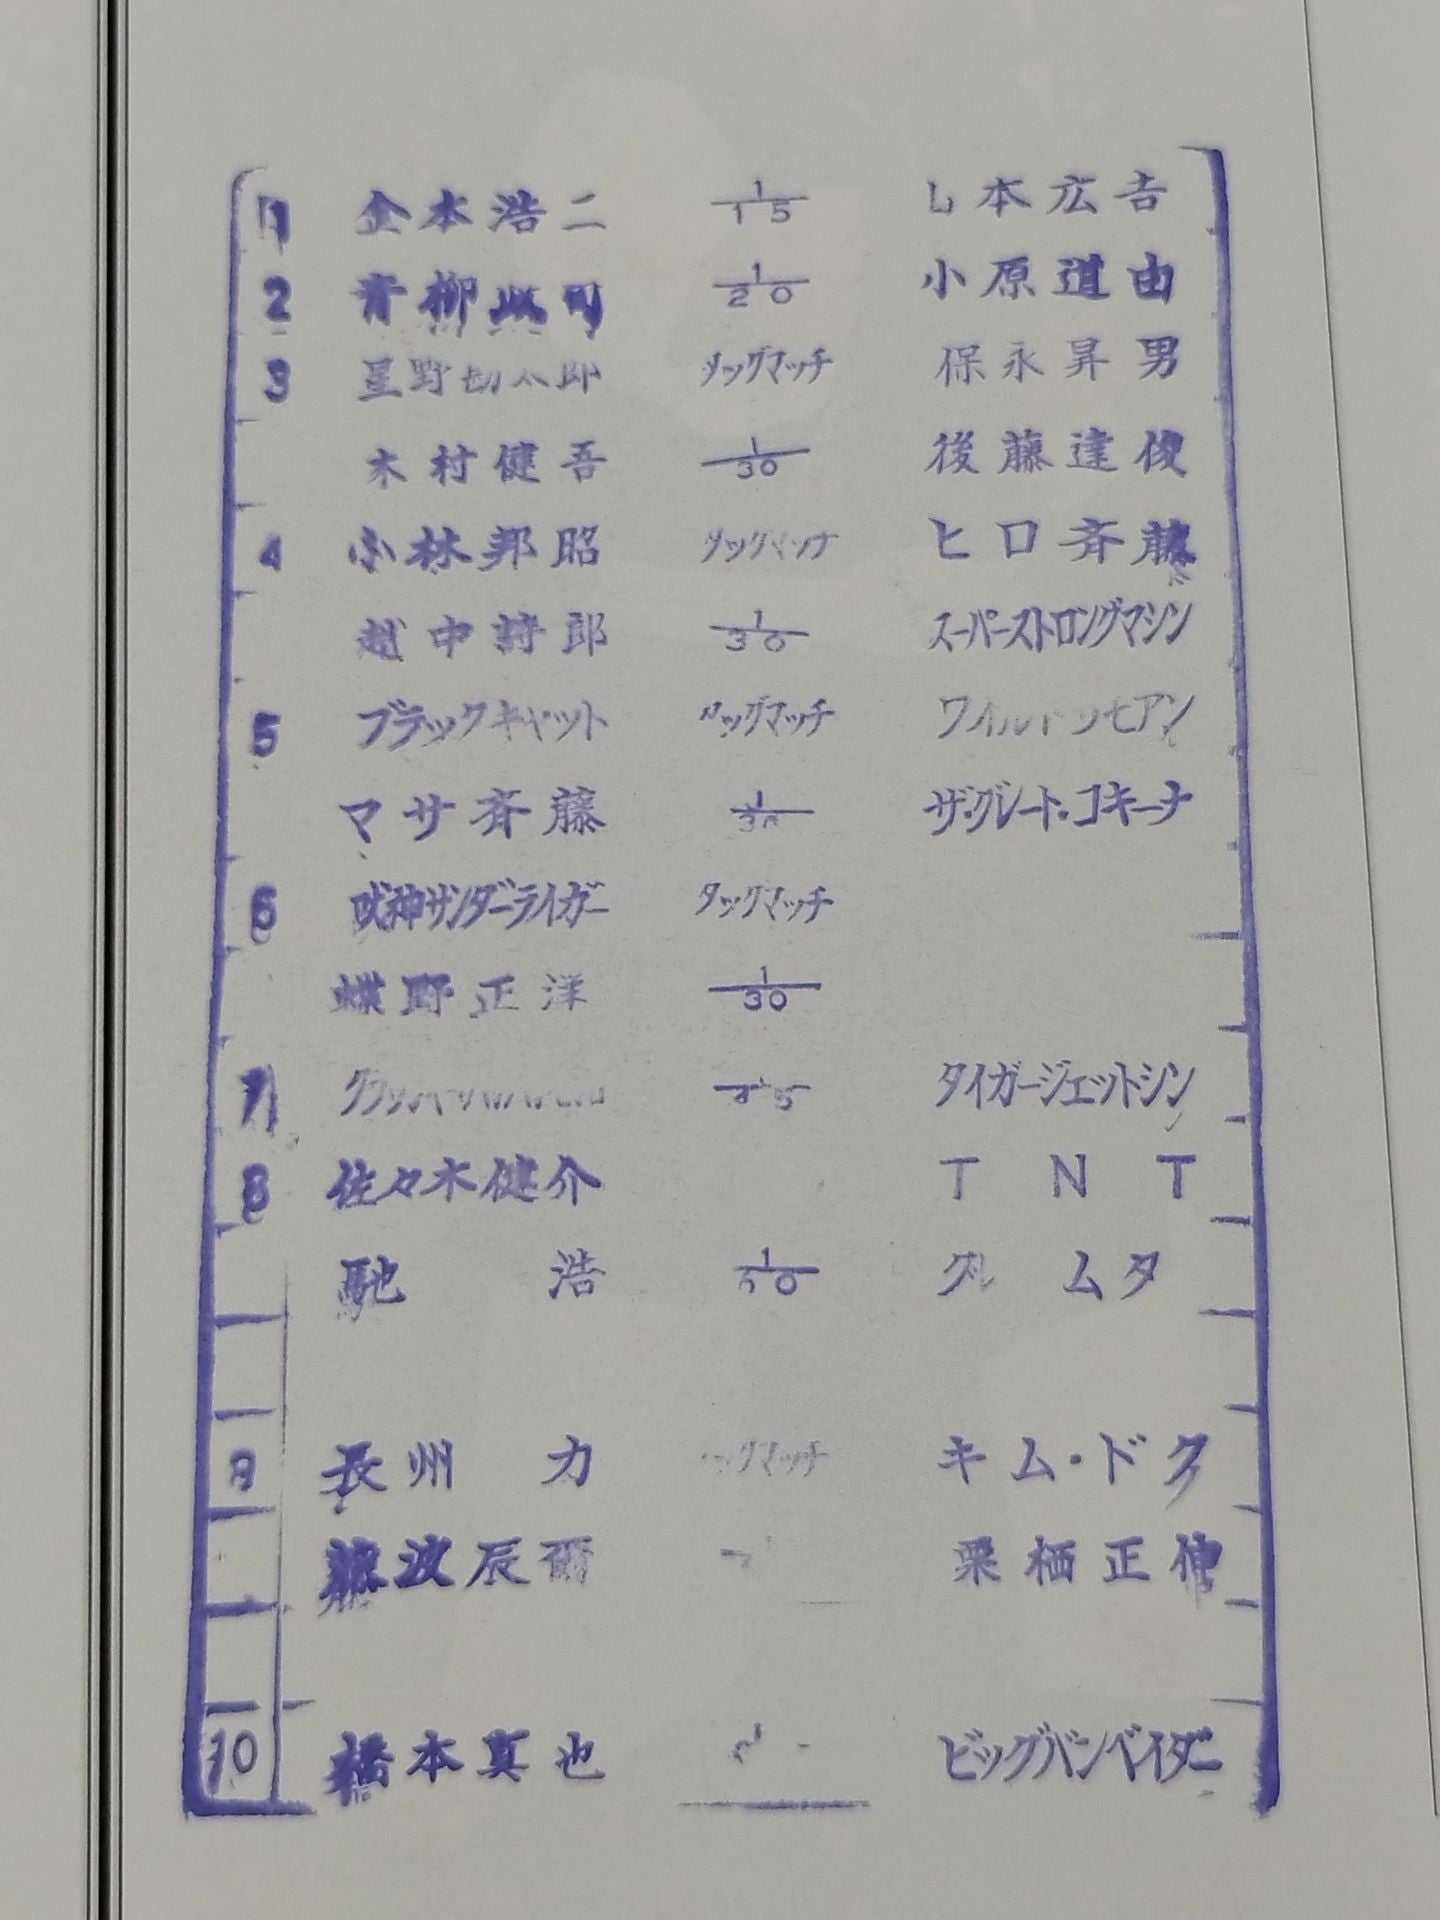 1 金本浩二 1/15 山本広吉
2 青柳政司 1/20 小原道由
3 星野勘太郎 タッグマッチ 保永昇男
木村健吾 1/30 後藤達俊
4 小林邦昭 タッグマッチ ヒロ斉藤
越中詩郎 1/30 スーパーストロングマシン
5 ブラックキャット タッグマッチ ワイルドサモアン
マサ斉藤 1/30 ザ・グレート・コキーナ
6 獣神サンダーライガー タッグマッチ
蝶野正洋 1/30
7 タイガージェットシン
8 佐々木健介 T N T
馳 浩 ムタ
9 長州 力 タッグマッチ キム・ドク
難波辰爾 栗栖正伸
10 橋本真也 ビッグバンベイダー